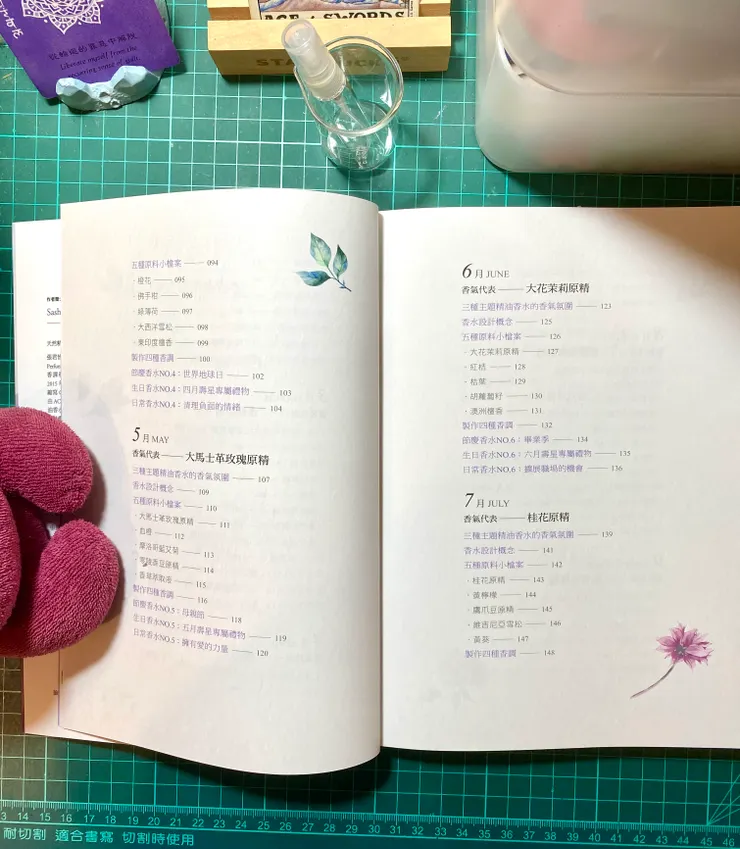 從輪迴的業中解脫
Liberate myself from the
ACE of SWORDS
五種原料小檔案 —— 094
· 橙花 —— 095
· 佛手柑 —— 096
· 綠薄荷 —— 097
· 大西洋雪松 —— 098
· 東印度檀香 —— 099
製作四種香調 —— 100
節慶香水NO.4：世界地球日 —— 102
生日香水NO.4：四月壽星專屬禮物 —— 103
日常香水NO.4：清理負面的情緒 —— 104
5月 MAY
香氣代表 —— 大馬士革玫瑰原精
三種主題精油香水的香氣氛圍 —— 107
香水設計概念 —— 109
五種原料小檔案 —— 110
· 大馬士革玫瑰原精 —— 111
· 血橙 —— 112
· 摩洛哥藍艾菊 —— 113
· 零陵香豆原精 —— 114
· 香草萃取液 —— 115
製作四種香調 —— 116
節慶香水NO.5：母親節 —— 118
生日香水NO.5：五月壽星專屬禮物 —— 119
日常香水NO.5：擁有愛的力量 —— 120
6月 JUNE
香氣代表 —— 大花茉莉原精
三種主題精油香水的香氣氛圍 —— 123
香水設計概念 —— 125
五種原料小檔案 —— 126
· 大花茉莉原精 —— 127
· 紅桔 —— 128
· 桔葉 —— 129
· 胡蘿蔔籽 —— 130
· 澳洲檀香 —— 131
製作四種香調 —— 132
節慶香水NO.6：畢業季 —— 134
生日香水NO.6：六月壽星專屬禮物 —— 135
日常香水NO.6：擴展職場的機會 —— 136
7月 JULY
香氣代表 —— 桂花原精
三種主題精油香水的香氣氛圍 —— 139
香水設計概念 —— 141
五種原料小檔案 —— 142
· 桂花原精 —— 143
· 黃檸檬 —— 144
· 鷹爪豆原精 —— 145
· 維吉尼亞雪松 —— 146
· 黃葵 —— 147
製作四種香調 —— 148
Sash
13 14 15 16 17 18 19 20 21 22 23 24 25 26 27 28 29 30 31 32 33 34 35 36 37 38 39 40 41 42 43 44 45 46
耐切割 適合書寫 切割時使用